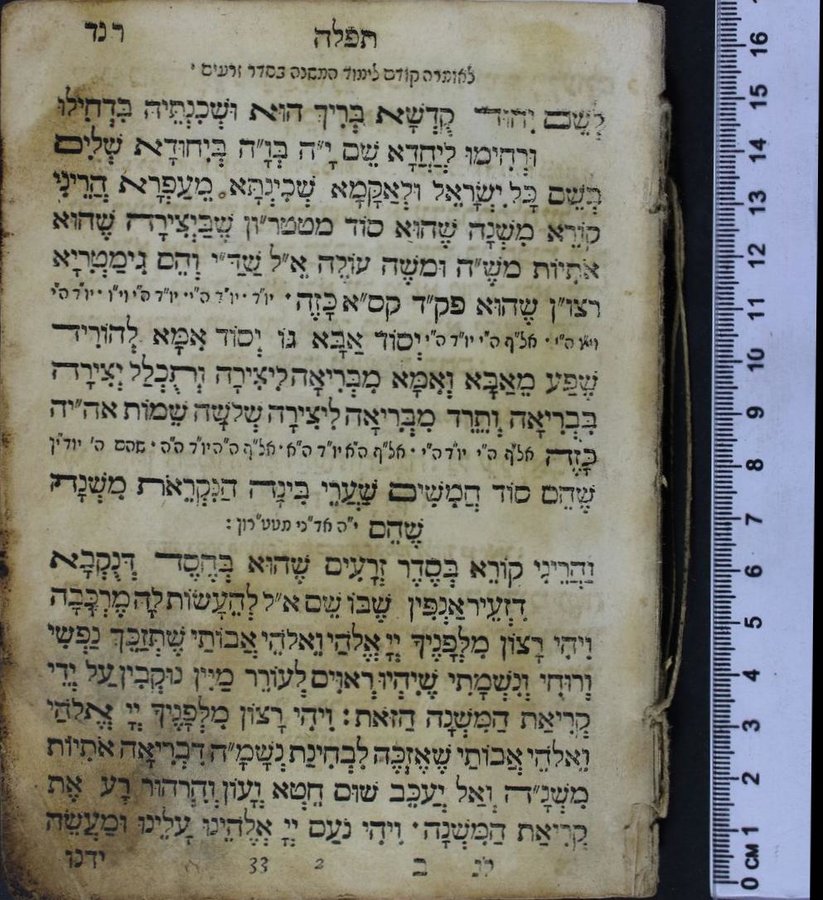 תפלה רנד
לאומרה קודם לימוד המשנה בסדר זרעים ׳
לְשֵׁם יִחוּד קֻדְשָׁא בְּרִיךְ הוּא וּשְׁכִנְתֵּיהּ בִּדְחִילוּ
וּרְחִימוּ לְיַחֲדָא שֵׁם י"ה בְּו"ה בְּיִחוּדָא שְׁלִים
בְּשֵׁם כָּל יִשְׂרָאֵל וּלְאַקָּמָא שְׁכִינְתָּא מֵעַפְרָא הֲרֵינִי
קוֹרֵא מִשְׁנָה שֶׁהוּא סוֹד מטטר"ון שֶׁבַּיְצִירָה שֶׁהוּא
אֹתִיּוֹת מש"ה וּמֹשֶׁה עוֹלֶה אֵ"ל שַׁדַּ"י וְהֵם גִימַטְרִיָא
רצו"ן שֶׁהוּא פק"ד קס"א כָּזֶה ׳ יו"ד ׳ יו"ד ה"י יו"ד ה"י וי"ו ׳ יו"ד ה"י
וי"ו ה"י ׳ אל"ף ה"י יו"ד ה"י יְסוֹד אַבָּא גּוֹ יְסוֹד אִמָּא לְהוֹרִיד
שֶׁפַע מֵאַבָּא וְאִמָּא מִבְּרִיאָה לִיצִירָה וְתֻכְלַל יְצִירָה
בִּבְרִיאָה וְתֵרֵד מִבְּרִיאָה לִיצִירָה שְׁלֹשָׁה שֵׁמוֹת אה"יה
כָּזֶה אל"ף ה"י יו"ד ה"י ׳ אל"ף ה"א יו"ד ה"א ׳ אל"ף ה"ה יו"ד ה"ה ׳ שהם ה' יודי"ן
שֶׁהֵם סוֹד חֲמִשִּׁים שַׁעֲרֵי בִּינָה הַנִּקְרֵאת מִשְׁנָה
שֶׁהֵם י"ה אד"ני מטט"רון :
וַהֲרֵינִי קוֹרֵא בְּסֵדֶר זְרָעִים שֶׁהוּא בְּחֶסֶד דְּנֻקְבָא
דִּזְעֵיר אַנְפִּין שֶׁבּוֹ שֵׁם א"ל לְהֵעָשׂוֹת לָהּ מֶרְכָּבָה
וִיהִי רָצוֹן מִלְּפָנֶיךָ יְיָ אֱלֹהַי וֵאלֹהֵי אֲבוֹתַי שֶׁתְּזַכֵּךְ נַפְשִׁי
וְרוּחִי וְנִשְׁמָתִי שֶׁיִּהְיוּ רְאוּיִם לְעוֹרֵר מַיִין נוּקְבִין עַל יְדֵי
קְרִיאַת הַמִּשְׁנָה הַזֹּאת : וִיהִי רָצוֹן מִלְּפָנֶיךָ יְיָ אֱלֹהַי
וֵאלֹהֵי אֲבוֹתַי שֶׁאֶזְכֶּה לִבְחִינַת נְשָׁמָ"ה דִבְרִיאָה אֹתִיּוֹת
מִשְׁנָ"ה וְאַל יְעַכֵּב שׁוּם חֵטְא וְעָוֹן וְהִרְהוּר רַע אֶת
קְרִיאַת הַמִּשְׁנָה ׳ וִיהִי נֹעַם יְיָ אֱלֹהֵינוּ עָלֵינוּ וּמַעֲשֵׂה
ב 2 33 ידנו
16
15
14
13
12
11
10
9
8
7
6
5
4
3
2
1
0 CM